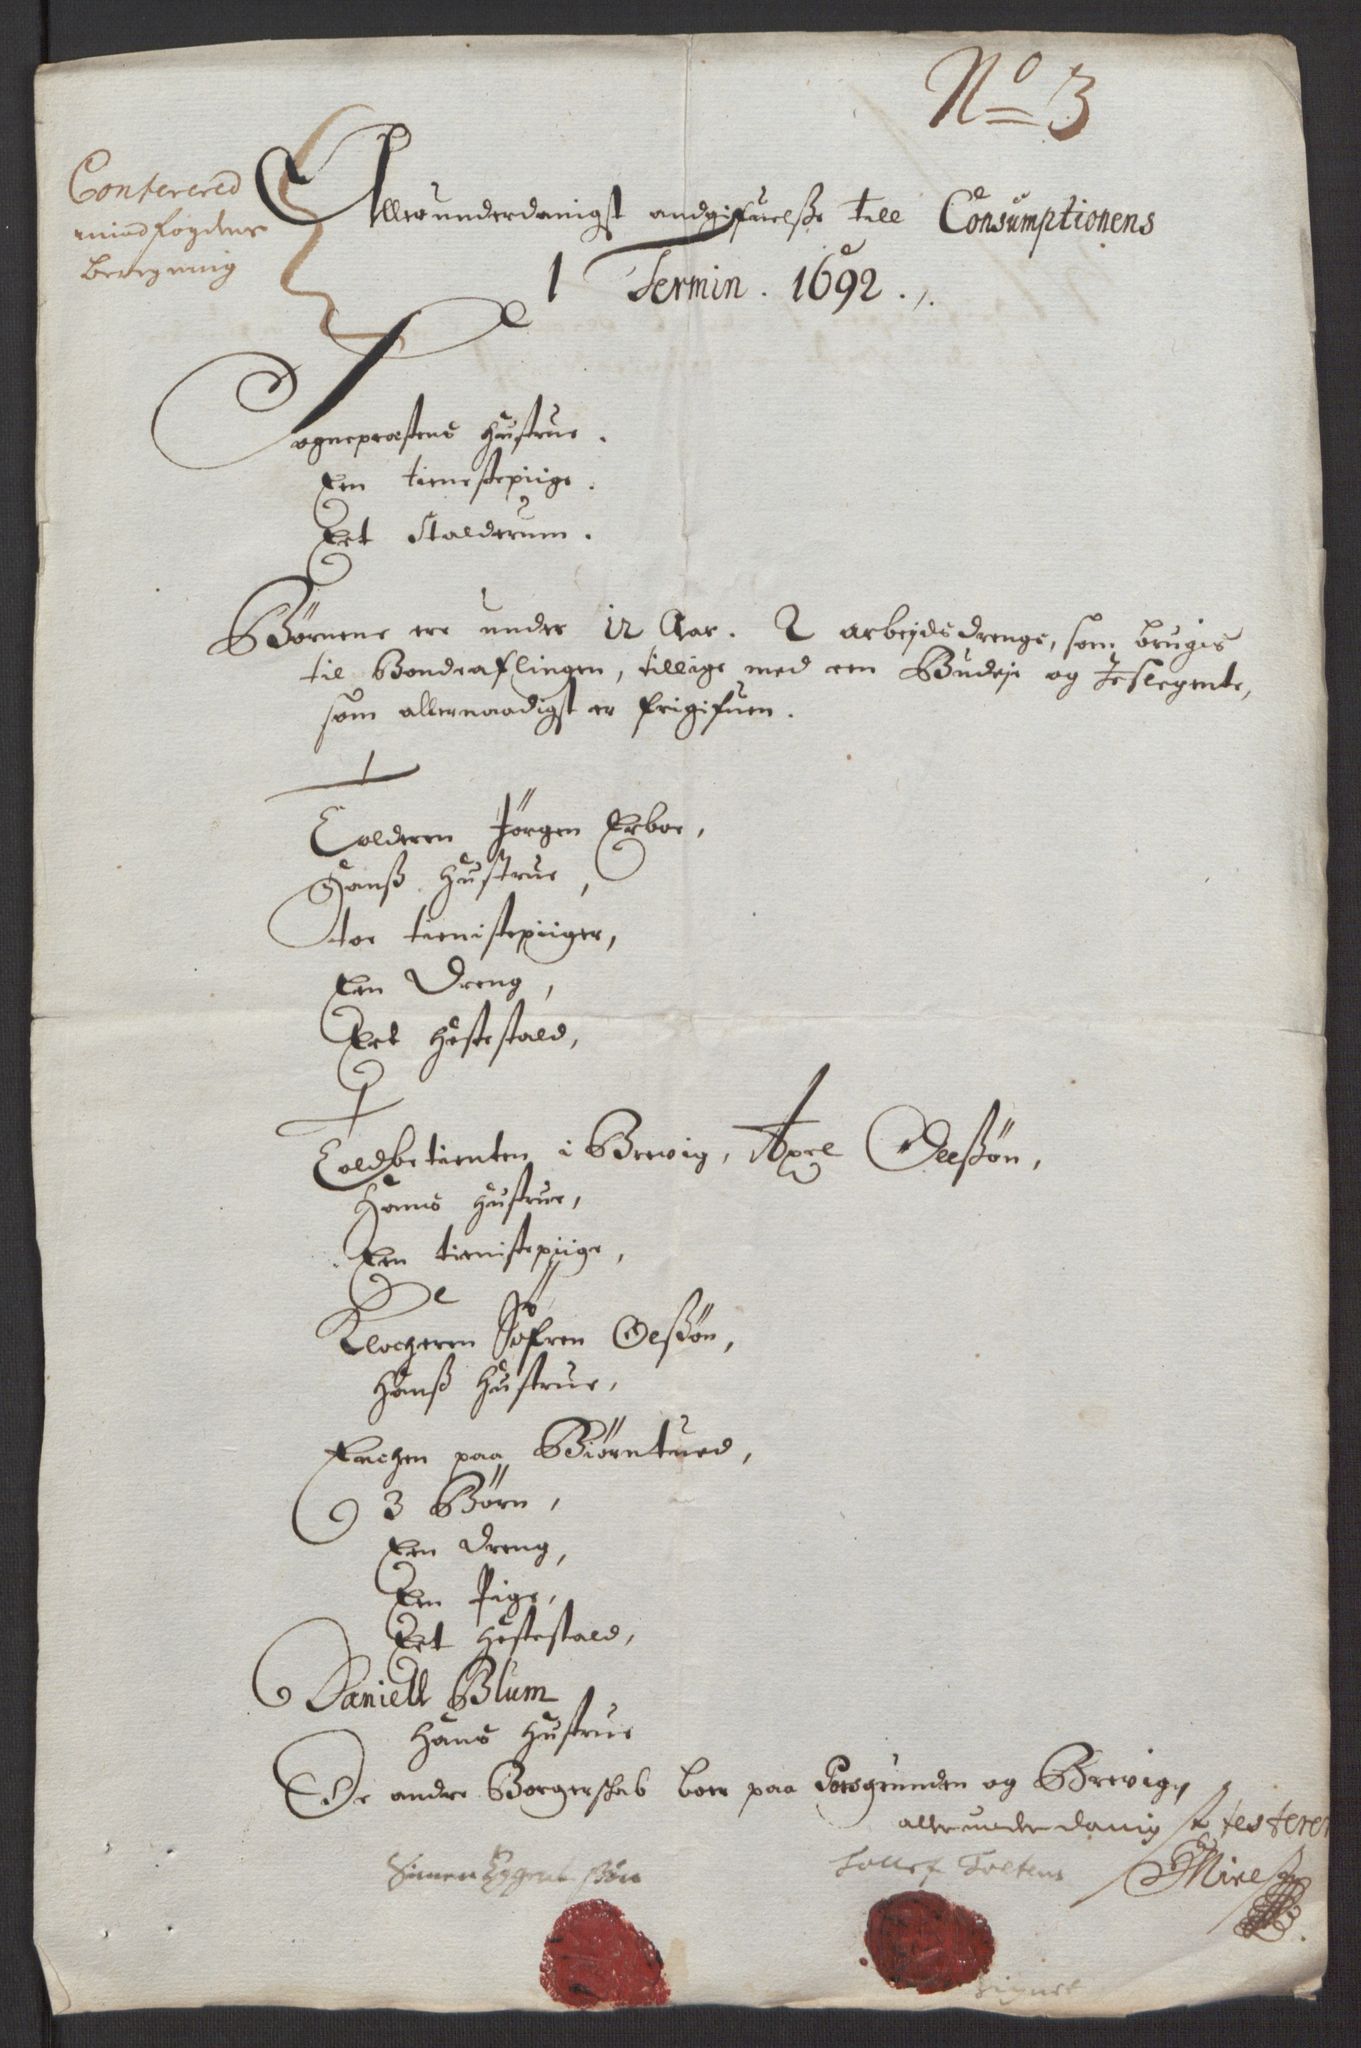 No 3
Confererred
mied fogdens
beregning
Allerunderdanigst andgifuelsse till Consumptionens
1 Termin . 1692 .
Sogneprestens Hustrue .
Een tienestepiige .
Eet Stalderum .
Børnene ere under 12 Aar . 2 arbejdsdrenge, som bruges
til Bondeaflingen, tillige med een Budeje og
som allernaadigst er frigifuen .
Tolderen Jörgen Erboe,
Hanß Hustrue,
Toe tienistepiiger,
Een Dreng,
Eet Hestestald,
Toldbetienten i Brevig, Apel Oelßøn,
Hans Hustrue,
Een tienistepiige,
Klocheren Söfren Oelßøn,
Hanß Hustrue,
Enchen paa Biørntued,
3 Børn,
Een Dreng,
Een Pige,
Eet Hestestald,
Daniell Blum
Hans Hustrue
De andre Borgerskab boer paa Porsgrunden og Brevig,
allerunderdanigst testerer
Simen
Tollef Toltens
Signet